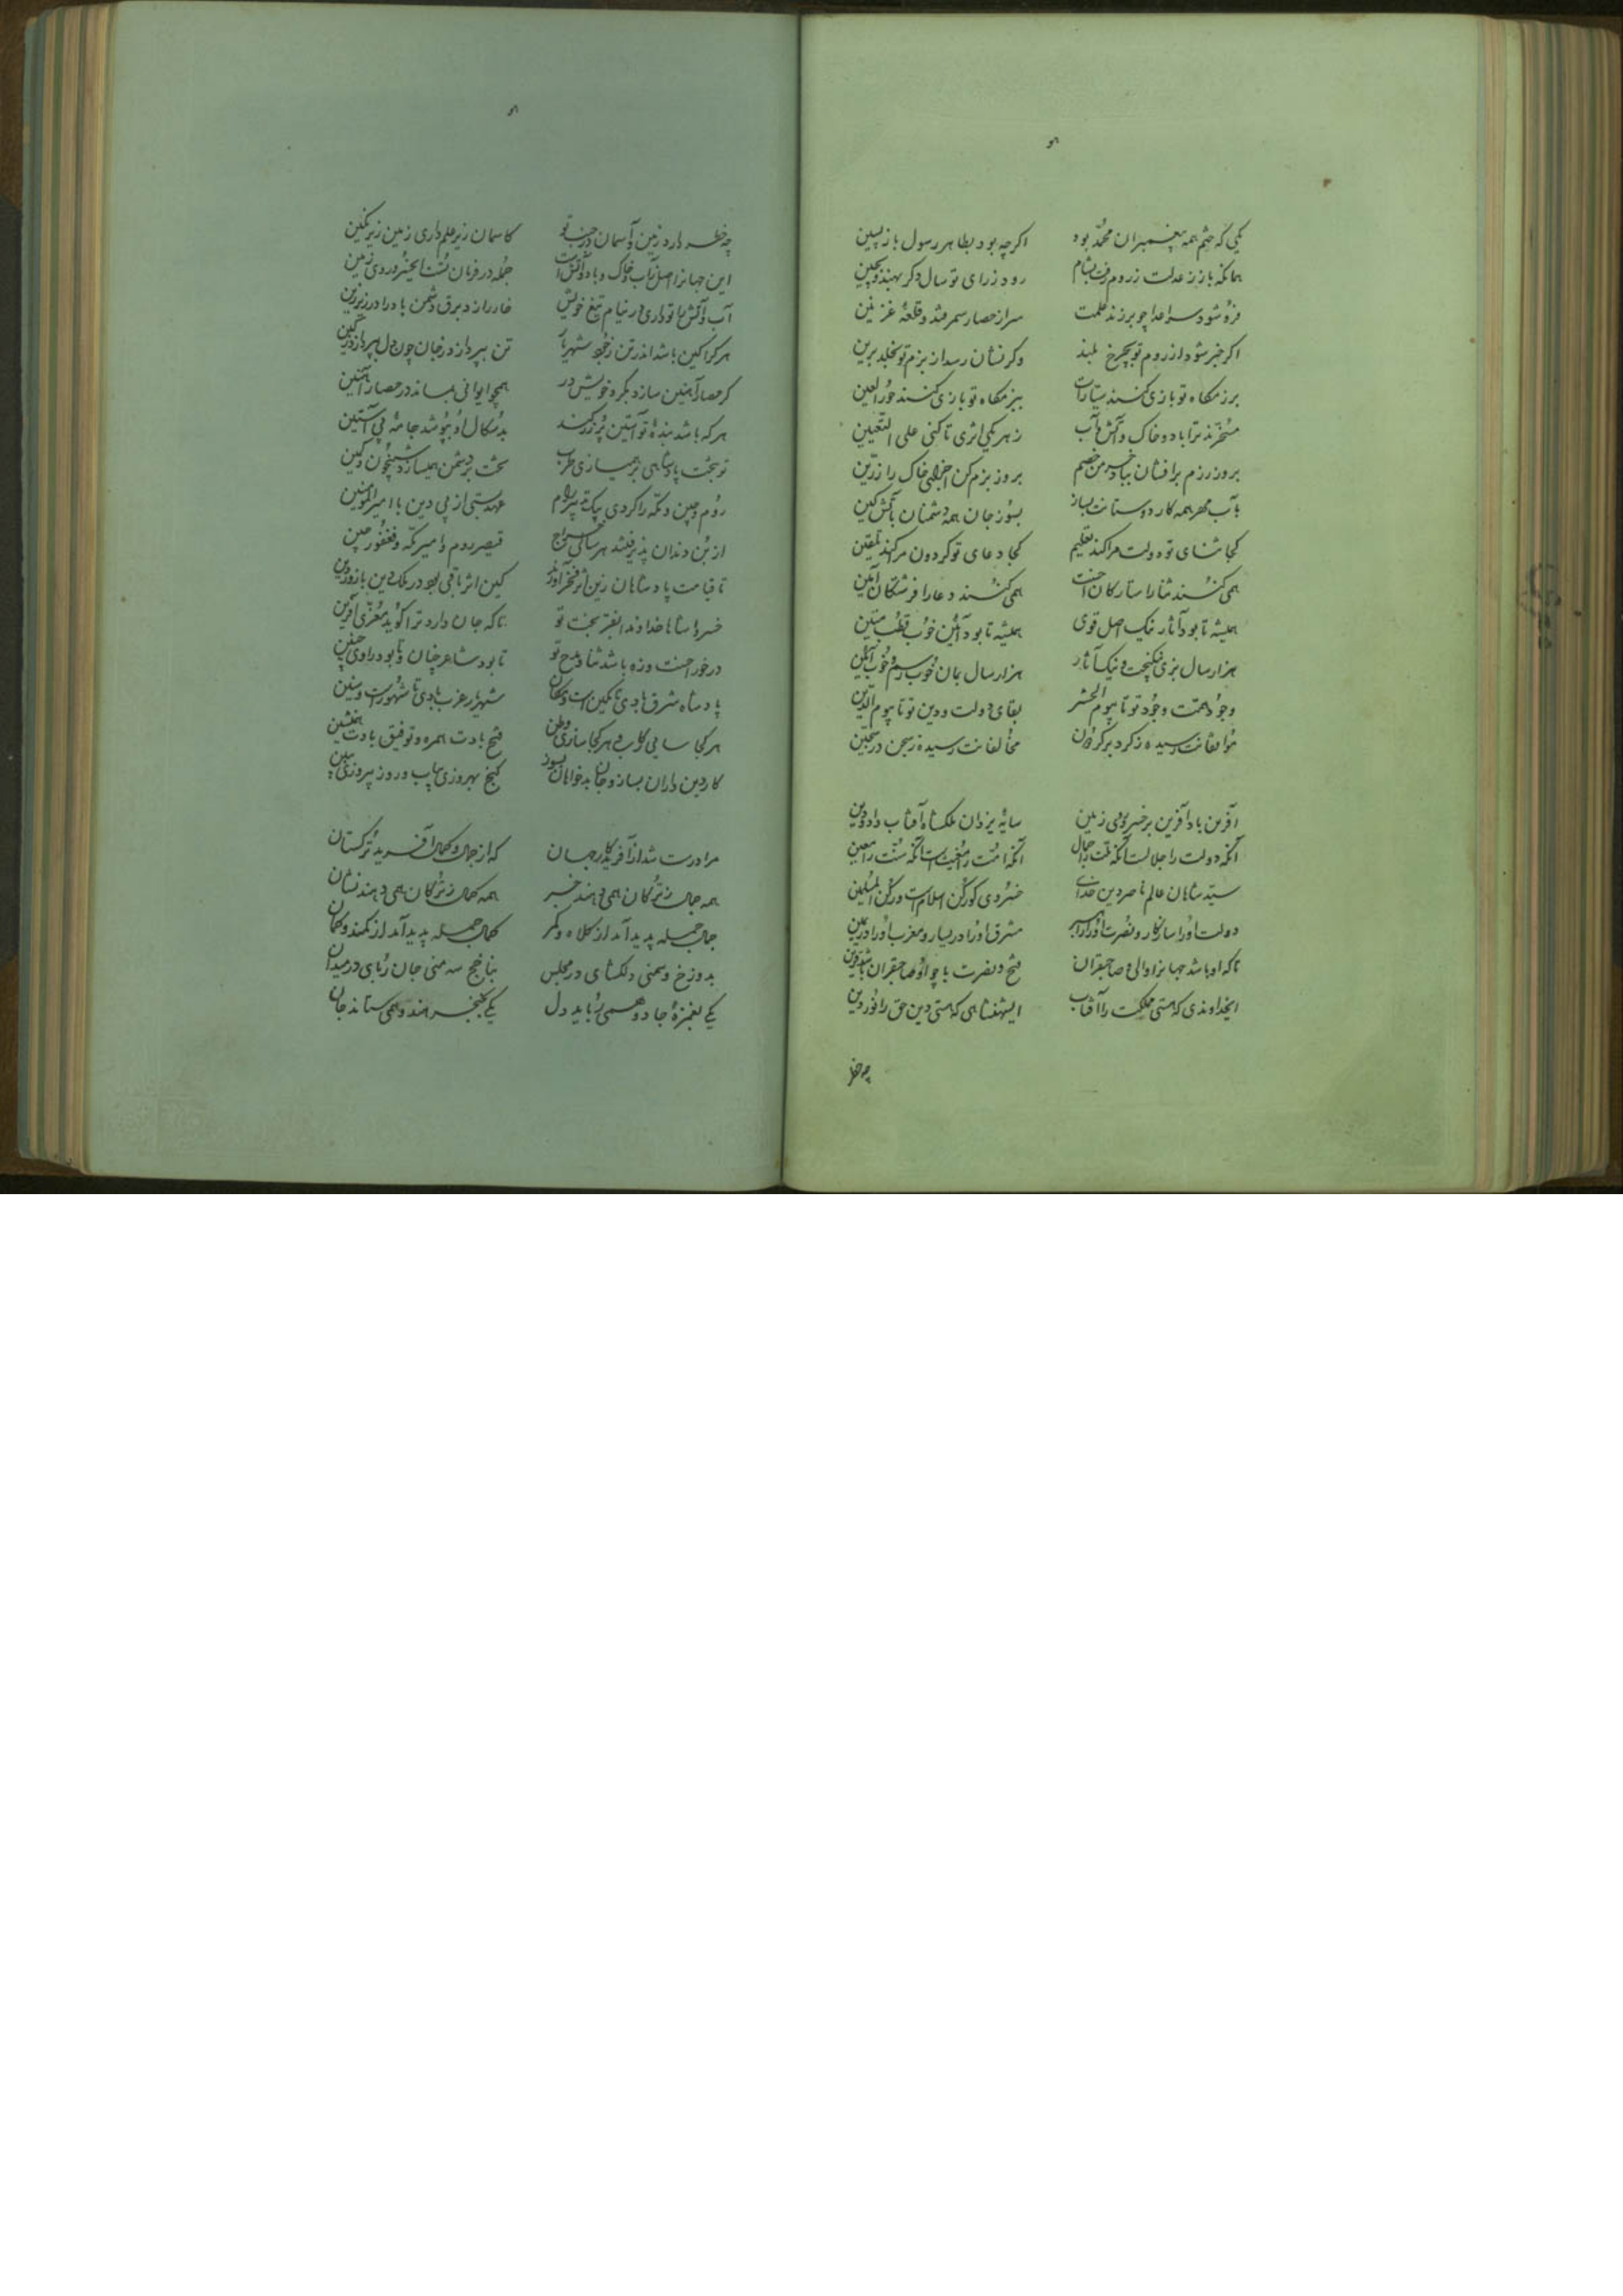 هو
یکی که ختم همه پیغمبران محمّد بود اکرچه بود بظاهر رسول بازپسین
همانکه باز عدلت ز روم رفت بشام رود ز رای تو سال دکر بهند و بچین
فرو شود سر اعدا چو برزند علمت سر از حصار سمرقند و قلعهٔ غزنین
اکر خبر شود از روم تو بچرخ بلند وکر نشان رسد از بزم تو بخلد برین
برزمکاه تو بازی کنند سیّارات ببزمکاه تو بازی کنند حورالعین
مسخّرند ترا باد و خاک و آتش و آب ز هر یکی اثری تا کنی علی التعیین
بروز رزم برافشان بباد خرمن خصم بروز بزم کن اجزای خاک را زرّین
بآب مهر همه کار دوستانت بساز بسوز جان همه دشمنان بآتش کین
کجا ثنای تو دولت مرا کند تعلیم کجا دعای تو کردون مرا کند تلقین
همی کنند ثنا را ستارکان احسنت همی کنند دعا را فرشتکان آمین
همیشه تا بود آثار نیک اصل قوی همیشه تا بود آئین خوب قطب متین
هزار سال بزی نیکبخت و نیک آثار هزار سال بمان خوب رسم و خوب آئین
وجود همّت وجود تو تا بیوم الحشر بقای دولت و دین تو تا بیوم الدّین
موافقانت رسیده ز کرد بر کردون مخالفانت رسیده ز سجن در سجّین
آفرین باد آفرین بر خسرو روی زمین سایهٔ یزدان ملکشاه آفتاب داد و دین
آنکه دولت را جلالست آنکه ملّت را جمال آنکه امّت را مغیث است آنکه سنّت را معین
سیّد شاهان عالم ناصر دین خدای خسروی کو رکن اسلام است و رکن المسلمین
دولت او را سازکار و نصرت او را راهبر مشرق او را در یسار و مغرب او را در یمین
تا که او باشد جهانرا والی و صاحبقران فتح و نصرت با چو او صاحبقران باشد قرین
ایخداوندی که هستی مملکت را آفتاب ایشهنشاهی که هستی دین حق را نور دین
چه خطر
هو
چه خطر دارد زمین و آسمان در جنب تو کاسمان زیر علم داری زمین زیر نکین
این جهانرا اصل ز آب و خاک و باد و آتش است جمله در فرمان تست ایخسرو روی زمین
آب و آتش را تو داری در نیام تیغ خویش
هر کرا کین باشد اندر تن ز خود شهریار تن بپردازد ز جان چون دل بپردازد ز کین
کر حصار آهنین سازد بکرد خویش در همچو ایوانی بماند در حصار آهنین
هر که باشد بندهٔ تو آستین پر زر کند بدسکال او بپوشد جامهٔ بی آستین
تو بتخت پادشاهی بر همیسازی طرب بخت بر دشمن همیسازد شبیخون و کمین
روم و چین و مکّه را کردی بیک تدبیر رام عهد بستی از پی دین با امیرالمؤمنین
از بن دندان پذیرفتند هر سالی خراج قیصر روم و امیر مکّه و فغفور چین
تا قیامت پادشاهان زین اثر فخر آورند کین اثر باقی بود در ملک و دین تا روز دین
خسروا شاها خداوندا بفرّ بخت تو تا که جان دارد ترا کوید معزّی آفرین
درخور احسنت و زه باشد ثنا و مدح تو تا بود شاعر چنان و تا بود راوی چنین
پادشاه شرق بادی تا مکین است و مکان شهریار غرب بادی تا شهور است و سنین
هر کجا سائی رکاب و هر کجا سازی وطن فتح بادت همره و توفیق بادت همنشین
کار دین داران بساز و جان بدخواهان بسوز کنج بهروزی بیاب و روز پیروزی ببین
مرا درست شد از آفریدکار جهان که از جمال و کمال آفرید ترکستان
همه جمال ز ترکان همی دهند خبر همه کمال ز ترکان همی دهند نشان
جمال جمله پدید آمد از کلاه و کمر کمال جمله پدید آمد از کمند و کمان
بدو رخ و سمنی دلکشای در مجلس بناچخ سه منی جان ربای در میدان
یکی بغمزهٔ جادو همی رباید دل یکی بخنجر هندو همی ستاند جان